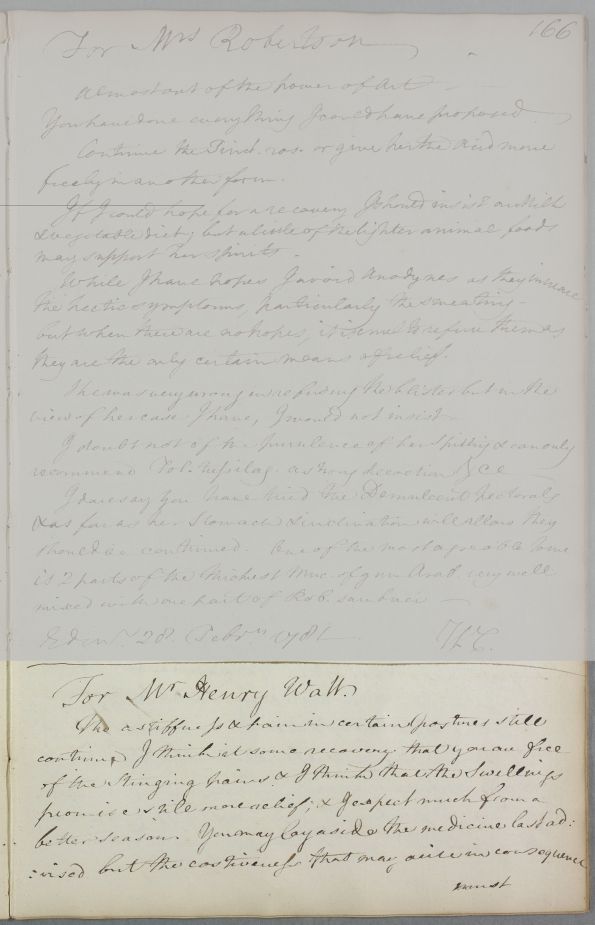 166
For Mrs Robertson
almost out of the power of Art
You have done everything I could have proposed
Continue the Tinct. ros. or give her the acid more
freely in another form.
If I could hope for a recovery I should insist on Milk
& vegetable diet; but a little of the lighter animal foods
may support her spirits.
While I have hopes I avoid Anodynes as they increase
the hectic symptoms, particularly the sweating
but when there are no hopes, it is to refuse them as
they are the only certain means of relief.
She was very wrong in refusing the blister but in the
view of her case I have, I would not insist
I doubt not of the purulence of her Spitting & can only
recommend Fol. tussilag. a strong decoction
I dare say you have tried the Demulcent pectorals
& as far as her Stomach & inclination will allow they
should be continued. One of the most agreable
is 2 parts of the thickest Muc. of gum Arab. very well
mixed with one part of Rob. sambuci
Edinr. 28. Febry 1781
For Mr Henry Watt.
Tho a stiffness & pain in certain postures still
continue I think it some recovery that you are free
of the stinging pains & I think that the Swellings
promise still more relief; & I expect much from a
better season. You may lay aside the medicine last ad:
:vised but the costiveness that may arise in consequence
must